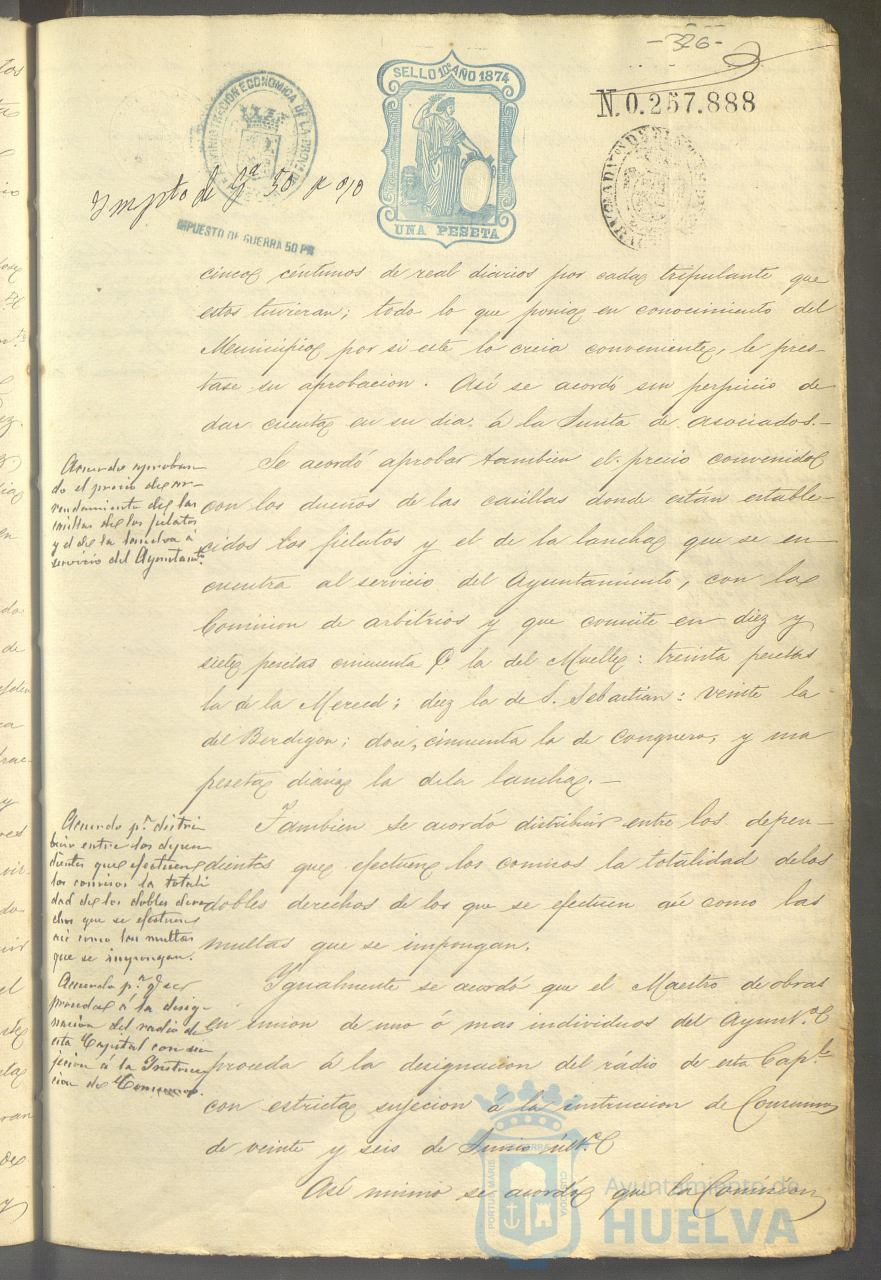 -326-
SELLO 10º AÑO 1874
N.0.257.888
ADMINISTRACION ECONOMICA DE LA PROV
Impto de Gª 50 p 0/0
UNA PESETA
IMPUESTO DE GUERRA 50 PS
cinco céntimos de real diarios por cada tripulante que
estos tuvieran; todo lo que ponia en conocimiento del
Municipio por si este lo creia conveniente, le pres-
tase su aprobacion. Así se acordó sin perjuicio de
dar cuenta en su dia á la Junta de asociados.-
Acuerdo aproban-
do el precio de ar-
rendamiento de las
casillas de los fielatos
y el de la lancha á
servicio del Ayuntamto
Se acordó aprobar tambien el precio convenido
con los dueños de las casillas donde están estable-
cidos los fielatos y el de la lancha que se en
cuentra al servicio del Ayuntamiento, con la
Comision de arbitrios y que consiste en diez y
siete pesetas cincuenta la del Muelle: treinta pesetas
la de la Merced; diez la de S. Sebastian: veinte la
del Berdigon; doce, cincuenta la de Conquero, y una
peseta diaria la de la lancha.-
Acuerdo pª distri
buir entre los depen
dientes que efectuen
los comisos la totali
dad de los dobles dere
chos que se efectuen
asi como las multas
que se impongan.
Tambien se acordó distribuir entre los depen-
dientes que efectuen los comisos la totalidad de los
dobles derechos de los que se efectuen así como las
multas que se impongan.
Acuerdo pª q. se
proceda á la desig-
nacion del radio de
esta Capital con su
jecion á la Instruc
cion de Consumos.
Igualmente se acordó que el Maestro de obras
en union de uno ó mas individuos del Ayuntº
proceda á la designacion del rádio de esta Capl.
con estricta sujecion á la instruccion de Consumos
de veinte y seis de Junio últº
Así mismo se acordó que la Comision
PORTUS MARIS
CUSTODIA
Ayuntamiento de
HUELVA